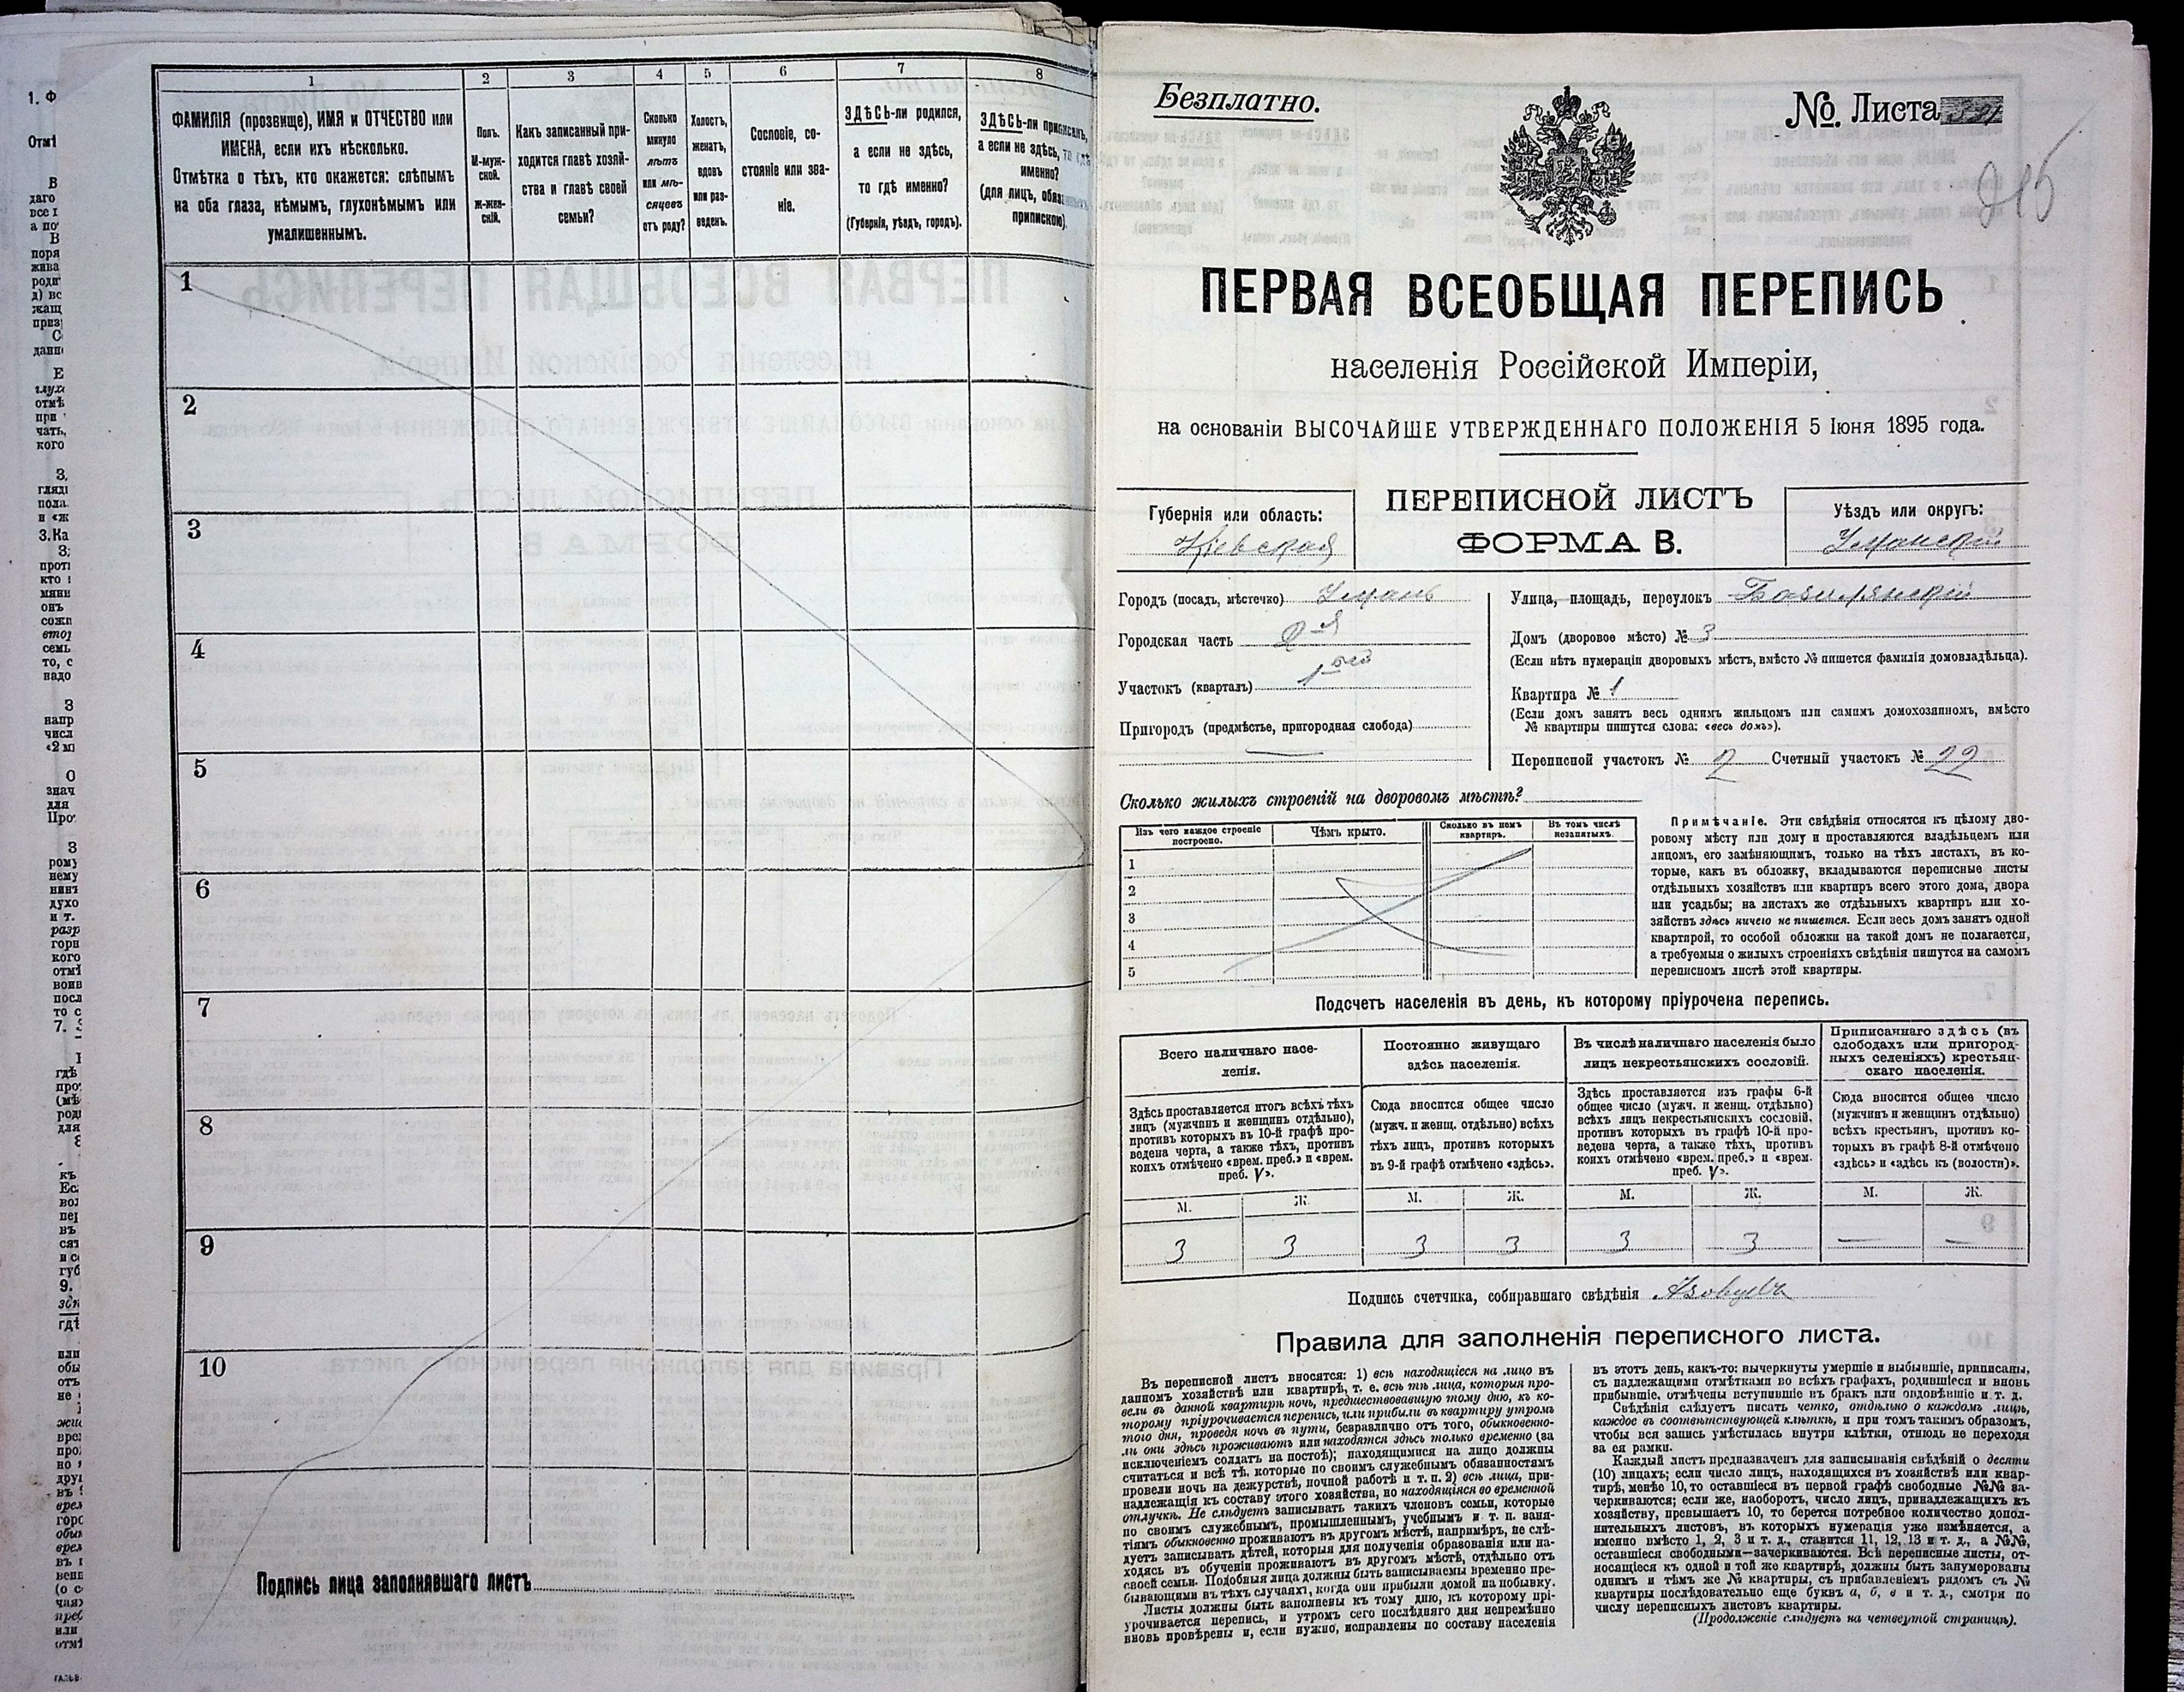 1 2 3 4 5 6 7 8
ФАМИЛІЯ (прозвище), ИМЯ и ОТЧЕСТВО или
ИМЕНА, если ихъ нѣсколько.
Отмѣтка о тѣхъ, кто окажется: слѣпымъ
на оба глаза, нѣмымъ, глухонѣмымъ или
умалишеннымъ.
Полъ.
М-муж-
ской.
Ж-жен-
скій.
Какъ записанный при-
ходится главѣ хозяй-
ства и главѣ своей
семьи?
Сколько
минуло
лѣтъ
или мѣ-
сяцевъ
отъ роду?
Холостъ,
женатъ,
вдовъ
или раз-
веденъ.
Сословіе, со-
стояніе или зва-
ніе.
ЗДѢСЬ-ли родился,
а если не здѣсь,
то гдѣ именно?
(Губернія, уѣздъ, городъ).
ЗДѢСЬ-ли приписанъ,
а если не здѣсь, то гдѣ
именно?
(для лицъ, обязанныхъ
припискою).
1
2
3
4
5
6
7
8
9
10
Подпись лица заполнявшаго листъ
Безплатно.
№. Листа
ПЕРВАЯ ВСЕОБЩАЯ ПЕРЕПИСЬ
населенія Россійской Имперіи,
на основаніи ВЫСОЧАЙШЕ УТВЕРЖДЕННАГО ПОЛОЖЕНІЯ 5 Іюня 1895 года.
Губернія или область:
Кіевская
ПЕРЕПИСНОЙ ЛИСТЪ
ФОРМА В.
Уѣздъ или округъ:
Уманскій
Городъ (посадъ, мѣстечко) Умань
Городская часть 2-я
Участокъ (кварталъ) 1ый
Пригородъ (предмѣстье, пригородная слобода)
Улица, площадь, переулокъ
Домъ (дворовое мѣсто) № 3
(Если нѣтъ нумераціи дворовыхъ мѣстъ, вмѣсто № пишется фамилія домовладѣльца).
Квартира № 1
(Если домъ занятъ весь однимъ жильцомъ или самимъ домохозяиномъ, вмѣсто
№ квартиры пишутся слова: «весь домъ»).
Переписной участокъ № 2 Счетный участокъ № 22
Сколько жилыхъ строеній на дворовомъ мѣстѣ?
Изъ чего каждое строеніе
построено.
Чѣмъ крыто.
Сколько въ немъ
квартиръ.
Въ томъ числѣ
незанятыхъ.
1
2
3
4
5
Примѣчаніе. Эти свѣдѣнія относятся къ цѣлому дво-
ровому мѣсту или дому и проставляются владѣльцемъ или
лицомъ, его замѣняющимъ, только на тѣхъ листахъ, въ ко-
торые, какъ въ обложку, вкладываются переписные листы
отдѣльныхъ хозяйствъ или квартиръ всего этого дома, двора
или усадьбы; на листахъ же отдѣльныхъ квартиръ или хо-
зяйствъ здѣсь ничего не пишется. Если весь домъ занятъ одной
квартирой, то особой обложки на такой домъ не полагается,
а требуемыя о жилыхъ строеніяхъ свѣдѣнія пишутся на самомъ
переписномъ листѣ этой квартиры.
Подсчетъ населенія въ день, къ которому пріурочена перепись.
Всего наличнаго насе-
ленія.
Здѣсь проставляется итогъ всѣхъ тѣхъ
лицъ (мужчинъ и женщинъ отдѣльно),
противъ которыхъ въ 10-й графѣ про-
ведена черта, а также тѣхъ, противъ
коихъ отмѣчено «врем. преб.» и «врем.
преб. V».
М. Ж.
3 3
Постоянно живущаго
здѣсь населенія.
Сюда вносится общее число
(мужч. и женщ. отдѣльно) всѣхъ
тѣхъ лицъ, противъ которыхъ
въ 9-й графѣ отмѣчено «здѣсь».
М. Ж.
3 3
Въ числѣ наличнаго населенія было
лицъ некрестьянскихъ сословій.
Здѣсь проставляется изъ графы 6-й
общее число (мужч. и женщ. отдѣльно)
всѣхъ лицъ некрестьянскихъ сословій,
противъ которыхъ въ графѣ 10-й про-
ведена черта, а также тѣхъ, противъ
коихъ отмѣчено «врем. преб.» и «врем.
преб. V».
М. Ж.
3 3
Приписаннаго здѣсь (въ
слободахъ или пригород-
ныхъ селеніяхъ) крестьян-
скаго населенія.
Сюда вносится общее число
(мужчинъ и женщинъ отдѣльно)
всѣхъ крестьянъ, противъ ко-
торыхъ въ графѣ 8-й отмѣчено
«здѣсь» и «здѣсь къ (волости)».
М. Ж.
— —
Подпись счетчика, собиравшаго свѣдѣнія
Правила для заполненія переписного листа.
Въ переписной листъ вносятся: 1) всѣ находящіеся на лицо въ
данномъ хозяйствѣ или квартирѣ, т. е. всѣ тѣ лица, которыя про-
вели въ данной квартирѣ ночь, предшествовавшую тому дню, къ ко-
торому пріурочивается перепись, или прибыли въ квартиру утромъ
того дня, проведя ночь въ пути, безразлично отъ того, обыкновенно-
ли они здѣсь проживаютъ или находятся здѣсь только временно (за
исключеніемъ солдатъ на постоѣ); находящимися на лицо должны
считаться и всѣ тѣ, которые по своимъ служебнымъ обязанностямъ
провели ночь на дежурствѣ, ночной работѣ и т. п. 2) всѣ лица, при-
надлежащія къ составу этого хозяйства, но находящіяся во временной
отлучкѣ. Не слѣдуетъ записывать такихъ членовъ семьи, которые
по своимъ служебнымъ, промышленнымъ, учебнымъ и т. п. заня-
тіямъ обыкновенно проживаютъ въ другомъ мѣстѣ, напримѣръ, не слѣ-
дуетъ записывать дѣтей, которыя для полученія образованія или на-
ходясь въ обученіи проживаютъ въ другомъ мѣстѣ, отдѣльно отъ
своей семьи. Подобныя лица должны быть записываемы временно пре-
бывающими въ тѣхъ случаяхъ, когда они прибыли домой на побывку.
Листы должны быть заполнены къ тому дню, къ которому прі-
урочивается перепись, и утромъ сего послѣдняго дня непремѣнно
вновь провѣрены и, если нужно, исправлены по составу населенія
въ этотъ день, какъ-то: вычеркнуты умершіе и выбывшіе, приписаны,
съ надлежащими отмѣтками во всѣхъ графахъ, родившіеся и вновь
прибывшіе, отмѣчены вступившіе въ бракъ или овдовѣвшіе и т. д.
Свѣдѣнія слѣдуетъ писать четко, отдѣльно о каждомъ лицѣ,
каждое въ соотвѣтствующей клѣткѣ, и при томъ такимъ образомъ,
чтобы вся запись умѣстилась внутри клѣтки, отнюдь не переходя
за ея рамки.
Каждый листъ предназначенъ для записыванія свѣдѣній о десяти
(10) лицахъ; если число лицъ, находящихся въ хозяйствѣ или квар-
тирѣ, менѣе 10, то оставшіеся въ первой графѣ свободные №№ за-
черкиваются; если же, наоборотъ, число лицъ, принадлежащихъ къ
хозяйству, превышаетъ 10, то берется потребное количество допол-
нительныхъ листовъ, въ которыхъ нумерація уже измѣняется, а
именно вмѣсто 1, 2, 3 и т. д., ставится 11, 12, 13 и т. д., а №№,
оставшіеся свободными—зачеркиваются. Всѣ переписные листы, от-
носящіеся къ одной и той же квартирѣ, должны быть занумерованы
однимъ и тѣмъ же № квартиры, съ прибавленіемъ рядомъ съ №
квартиры послѣдовательно еще буквъ а, б, в и т. д., смотря по
числу переписныхъ листовъ квартиры.
(Продолженіе слѣдуетъ на четвертой страницѣ).